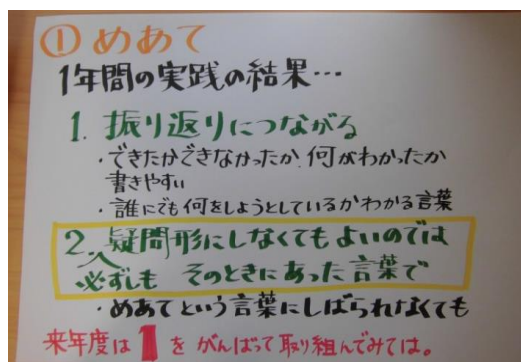 ①めあて
1年間の実践の結果…
1. 振り返りにつながる
・できたかできなかったか、何がわかったか
書きやすい
・誰にでも何をしようとしているかわかる言葉
2. 疑問形にしなくてもよいのでは
必ずしも そのときにあった言葉で
・めあてという言葉にしばられなくても
来年度は 1 を がんばって取り組んでみては。